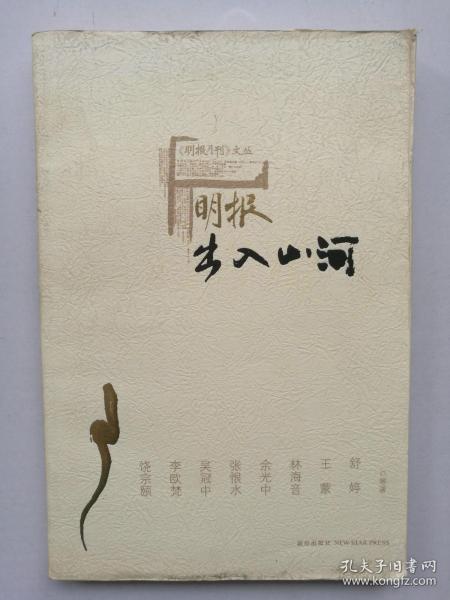 《明报月刊》文丛
明报
出入山河
舒婷
王蒙
林海音
余光中
张恨水
吴冠中
李欧梵
饶宗颐
◎等著
新星出版社 NEW STAR PRESS
孔夫子旧书网
www.kongfz.com